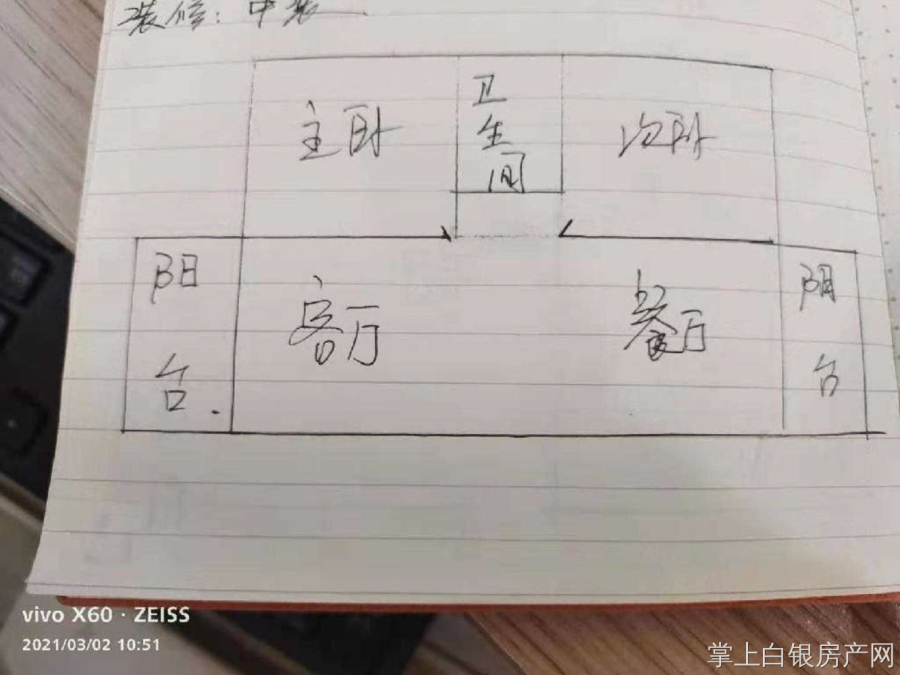 装修：中装
主卧
卫生间
次卧
阳台.
客厅
餐厅
阳台
vivo X60 · ZEISS
2021/03/02 10:51
掌上白银房产网